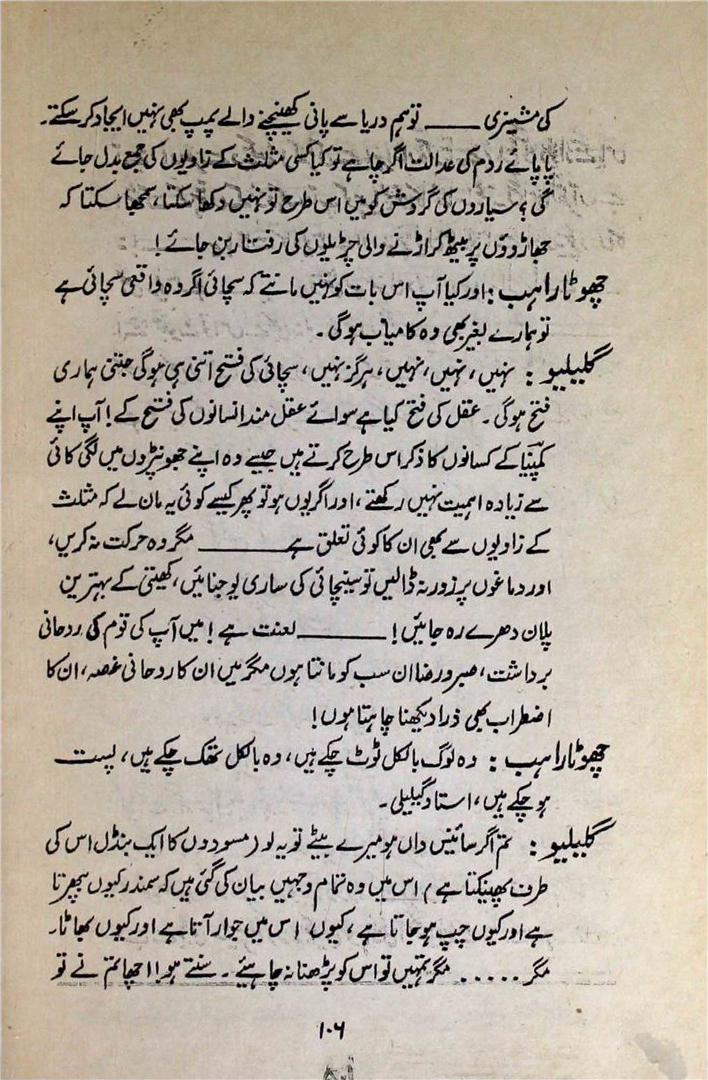 کی مشینری ــــــ تو ہم دریا سے پانی کھینچنے والے پمپ بھی نہیں ایجاد کر سکتے۔
پاپائے روم کی عدالت اگر چاہے تو کیا کسی مثلث کے زاویوں کی جمع بدل جائے
گی؟ سیاروں کی گردش کو میں اس طرح تو نہیں دکھا سکتا، سمجھا سکتا کہ
جھاڑوؤں پر بیٹھ کر اڑنے والی چڑیلوں کی رفتار بن جائے!
چھوٹا راہب: اور کیا آپ اس بات کو نہیں مانتے کہ سچائی اگر وہ واقعی سچائی ہے
تو ہمارے بغیر بھی وہ کامیاب ہوگی۔
گلیلیو: نہیں، نہیں، نہیں، ہرگز نہیں، سچائی کی فتح اتنی ہی ہوگی جتنی ہماری
فتح ہوگی۔ عقل کی فتح کیا ہے سوائے عقل مند انسانوں کی فتح کے! آپ اپنے
کمپنیا کے کسانوں کا ذکر اس طرح کرتے ہیں جیسے وہ اپنے جھونپڑوں میں لگی کائی
سے زیادہ اہمیت نہیں رکھتے، اور اگر یوں ہو تو پھر کیسے کوئی یہ مان لے کہ مثلث
کے زاویوں سے بھی ان کا کوئی تعلق ہے ــــــــــــ مگر وہ حرکت نہ کریں،
اور دماغوں پر زور نہ ڈالیں تو سینچائی کی ساری یوجنائیں، کھیتی کے بہترین
پلان دھرے رہ جائیں! ــــــــــ لعنت ہے! میں آپ کی قوم کی روحانی
برداشت، صبر و رضا ان سب کو مانتا ہوں مگر میں ان کا روحانی غصہ، ان کا
اضطراب بھی ذرا دیکھنا چاہتا ہوں!
چھوٹا راہب: وہ لوگ بالکل ٹوٹ چکے ہیں، وہ بالکل تھک چکے ہیں، پست
ہو چکے ہیں، استاد گیلیلی۔
گلیلیو: تم اگر سائنس داں ہو میرے بیٹے تو یہ لو (مسودوں کا ایک بنڈل اس کی
طرف پھینکتا ہے) اس میں وہ تمام وجہیں بیان کی گئی ہیں کہ سمندر کیوں بپھرتا
ہے اور کیوں چپ ہو جاتا ہے، کیوں اس میں جوار آتا ہے اور کیوں بھاٹا۔
مگر ..... مگر تمہیں تو اس کو پڑھنا نہ چاہیئے۔ سنتے ہو! اچھا تم نے تو
۱۰۶